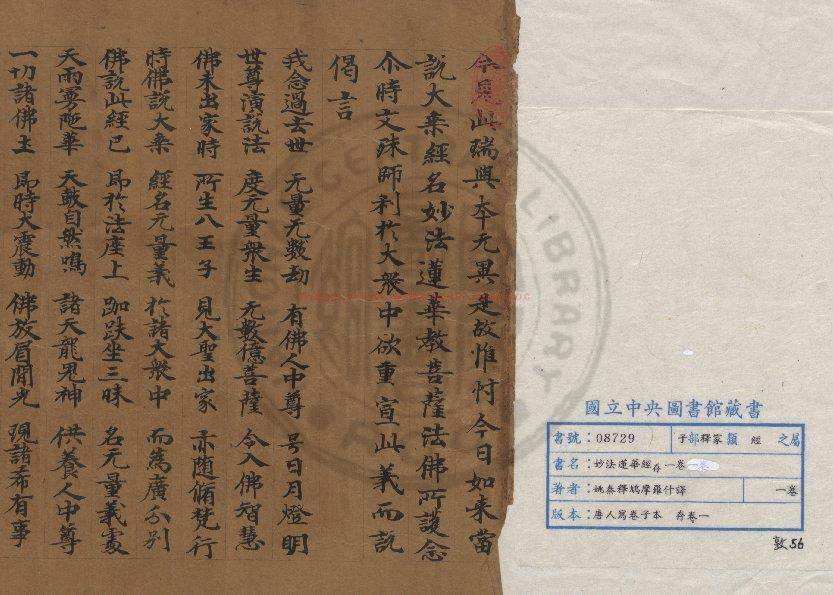 今見此瑞與本无異是故惟忖今日如來當
說大乗經名妙法蓮華教菩薩法佛所護念
尒時文殊師利於大衆中欲重宣此義而說
偈言
我念過去世 无量无數劫 有佛人中尊 号日月燈明
世尊演說法 度无量衆生 无數億菩薩 令入佛智慧
佛未出家時 所生八王子 見大聖出家 亦随脩梵行
時佛說大乗 經名无量義 於諸大衆中 而為廣分別
佛說此經已 即於法座上 跏趺坐三昧 名无量義處
天雨曼陁華 天鼓自然鳴 諸天龍鬼神 供養人中尊
一切諸佛土 即時大震動 佛放眉間光 現諸希有事
國立中央圖書館藏書
書號：08729 子部釋家類 經 之屬
書名：妙法蓮華經存一卷
著者：姚秦釋鳩摩羅什譯 一卷
版本：唐人寫卷子本 存卷一
敦56
CENTRAL LIBRARY